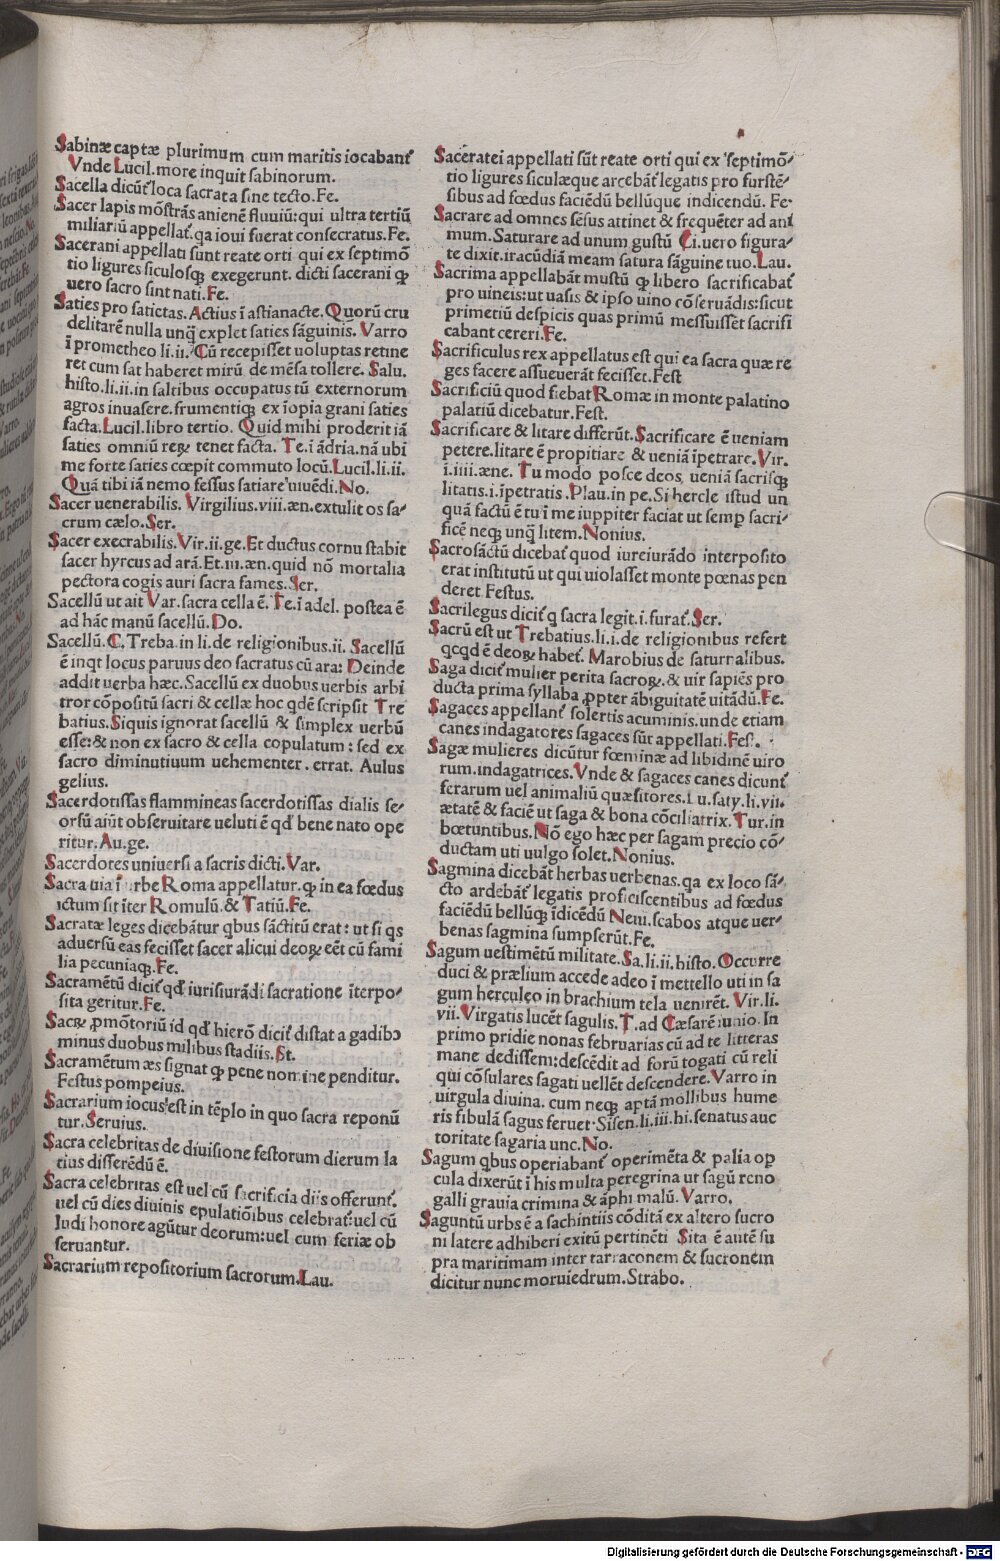 Sabinæ captæ plurimum cum maritis iocabant᷑
Vnde Lucil.more inquit sabinorum.
Sacella dicūt᷑ loca sacrata sine tecto.Fe.
Sacer lapis mōstrās anienē fluuiū:qui ultra tertiū
miliariū appellat᷑.qa ioui fuerat consecratus.Fe.
Sacerani appellati sunt reate orti qui ex septimō
tio ligures siculosqꝫ exegerunt. dicti sacerani ꝙ
uero sacro sint nati.Fe.
Saties pro satietas. Actius ī astianacte.Quorū cru
delitarē nulla unq̄ explet saties sāguinis. Varro
ī prometheo li.ii. Cū recepisset uoluptas retine
ret cum sat haberet mirū de mēsa tollere. Salu.
histo.li.ii.in saltibus occupatus tū externorum
agros inuasere.frumentiqꝫ ex iopia grani saties
facta.Lucil.libro tertio. Quid mihi proderit iā
saties omniū reꝝ tenet facta. Te.ī ādria.nā ubi
me forte saties cœpit commuto locū.Lucil.li.ii.
Quā tibi iā nemo fessus satiare uiuēdi.No.
Sacer uenerabilis. Virgilius.viii.æn.extulit os sa-
crum cælo.Ser.
Sacer execrabilis.Vir.ii.ge.Et ductus cornu stabit
sacer hyrcus ad arā.Et.iii.æn.quid nō mortalia
pectora cogis auri sacra fames.Ser.
Sacellū ut ait Var.sacra cella ē. Te.ī adel. postea ē
ad hāc manū sacellū.Do.
Sacellū.C.Treba.in li.de religionibus.ii. Sacellū
ē inqt locus paruus deo sacratus cū ara: Deinde
addit uerba hæc.Sacellū ex duobus uerbis arbi
tror cōpositū sacri & cellæ hoc qdē scripsit Tre
batius.Siquis ignorat sacellū & simplex uerbū
esse:& non ex sacro & cella copulatum : sed ex
sacro diminutiuum uehementer.errat. Aulus
gelius.
Sacerdotissas flammineas sacerdotissas dialis se-
orsū aiūt obseruitare ueluti ē qd̓ bene nato ope
ritur.Au.ge.
Sacerdotes uniuersi a sacris dicti.Var.
Sacra uia ī urbe Roma appellatur.ꝙ in ea fœdus
ictum sit īter Romulū.& Tatiū.Fe.
Sacratæ leges dicebātur qbus sāctitū erat: ut si qs
aduersū eas fecisset sacer alicui deoꝝ eēt cū fami
lia pecuniaqꝫ.Fe.
Sacramētū dicit᷑ qd̓ iurisiurādi sacratione īterpo-
sita geritur.Fe.
Sacꝝ ꝓmōtoriū id qd̓ hierō dicit᷑ distat a gadibꝰ
minus duobus milibus stadiis.St.
Sacramētum æs signat ꝙ pene nomine penditur.
Festus pompeius.
Sacrarium locus est in tēplo in quo sacra reponū
tur.Seruius.
Sacra celebritas de diuisione festorum dierum la
tius differēdū ē.
Sacra celebritas est uel cū sacrificia diis offerunt᷑.
uel cū dies diuinis epulatiōibus celebrat᷑:uel cū
ludi honore agūtur deorum:uel cum feriæ ob
seruantur.
Sacrarium repositorium sacrorum.Lau.
Saceratei appellati sūt reate orti qui ex septimō-
tio ligures siculæque arcebāt᷑ legatis pro furstē-
sibus ad fœdus faciēdū bellūque indicendū. Fe.
Sacrare ad omnes sēsus attinet & frequēter ad ani
mum. Saturare ad unum gustū Ci.uero figura-
te dixit.iracūdiā meam satura sāguine tuo.Lau.
Sacrima appellabāt mustū ꝙ libero sacrificabāt
pro uineis:ut uasis & ipso uino cōseruādis:sicut
primetiū despicis quas primū messuisset sacrifi
cabant cereri.Fe.
Sacrificulus rex appellatus est qui ea sacra quæ re
ges facere assueuerāt fecisset.Fest
Sacrificiū quod fiebat Romæ in monte palatino
palatiū dicebatur.Fest.
Sacrificare & litare differūt.Sacrificare ē ueniam
petere.litare ē propitiare & ueniā īpetrare.Vir.
i.iiii.æne. Tu modo posce deos, ueniā sacrisqꝫ
litatis.i.īpetratis.Plau.in pe.Si hercle istud un
quā factū ē tu ī me iuppiter faciat ut semꝑ sacri-
ficē neqꝫ unq̄ litem.Nonius.
Sacrosāctū dicebat᷑ quod iureiurādo interposito
erat institutū ut qui uiolasset monte pœnas pen
deret Festus.
Sacrilegus dicit᷑ q sacra legit.i.furat᷑.Ser.
Sacrū est ut Trebatius.li.i.de religionibus refert
qcqd ē deoꝝ habet᷑. Marobius de saturnalibus.
Saga dicit᷑ mulier perita sacroꝝ.& uir sapiēs pro
ducta prima syllaba ꝓpter ābiguitatē uitādū.Fe.
Sagaces appellant᷑ solertis acuminis.unde etiam
canes indagatores sagaces sūt appellati.Fes.
Sagæ mulieres dicūtur fœminæ ad libidinē uiro
rum.indagatrices.Vnde & sagaces canes dicunt᷑
ferarum uel animaliū quæsitores.Lu.saty.li.vii.
ætatē & faciē ut saga & bona cōciliatrix.Tur.in
bœtuntibus.Nō ego hæc per sagam precio cō-
ductam uti uulgo solet.Nonius.
Sagmina dicebāt herbas uerbenas.qa ex loco sā-
cto ardebāt᷑ legatis proficiscentibus ad fœdus
faciēdū bellūqꝫ īdicēdū Neui.scabos atque uer-
benas sagmina sumpserūt.Fe.
Sagum uestimētū militate.Sa.li.ii.histo.Occurre
duci & prælium accede adeo ī mettello uti in sa
gum herculeo in brachium tela uenirēt. Vir.li.
vii.Virgatis lucēt sagulis.T.ad Cæsarē iunio.In
primo pridie nonas februarias cū ad te litteras
mane dedissem:descēdit ad forū togati cū reli
qui cōsulares sagati uellēt descendere.Varro in
uirgula diuina. cum neqꝫ aptā mollibus hume
ris fibulā sagus feruet.Sisen.li.iii.hi.senatus auc
toritate sagaria unc.No.
Sagum qbus operiabant᷑ operimēta & palia op
cula dixerūt ī his multa peregrina ut sagū reno
galli grauia crimina & āphi malū. Varro.
Saguntū urbs ē a sachintiis cōditā ex altero sucro
ni latere adhiberi exitū pertinēti Sita ē autē su
pra maritimam inter tarraconem & sucronem
dicitur nunc moruiedrum.Strabo.
Digitalisierung gefördert durch die Deutsche Forschungsgemeinschaft - DFG